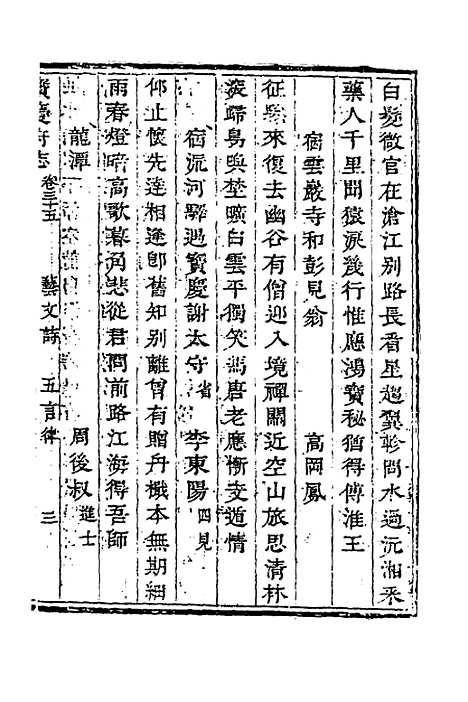 白髮微官在滄江别路長看星趨翼軫問水過沅湘釆
藥人千里聞猿淚幾行惟應鴻寶秘猶得傳淮王
宿雲巖寺和彭見翁 高岡鳳
征來復去幽谷有僧迎入境禪關近空山旅思清林
歸鳥與埜曠白雲平獨笑馮唐老應慚支遁情
宿沅河驛過寳慶謝太守省 李東陽四見
仰止懷先達相逢卽舊知别離曾有贈丹檝本無期細
雨春燈暗高歌暮角悲從君問前路江海得吾師
龍潭 周後叔進士
寶慶府志 卷三十五 藝文詩 五言律 三